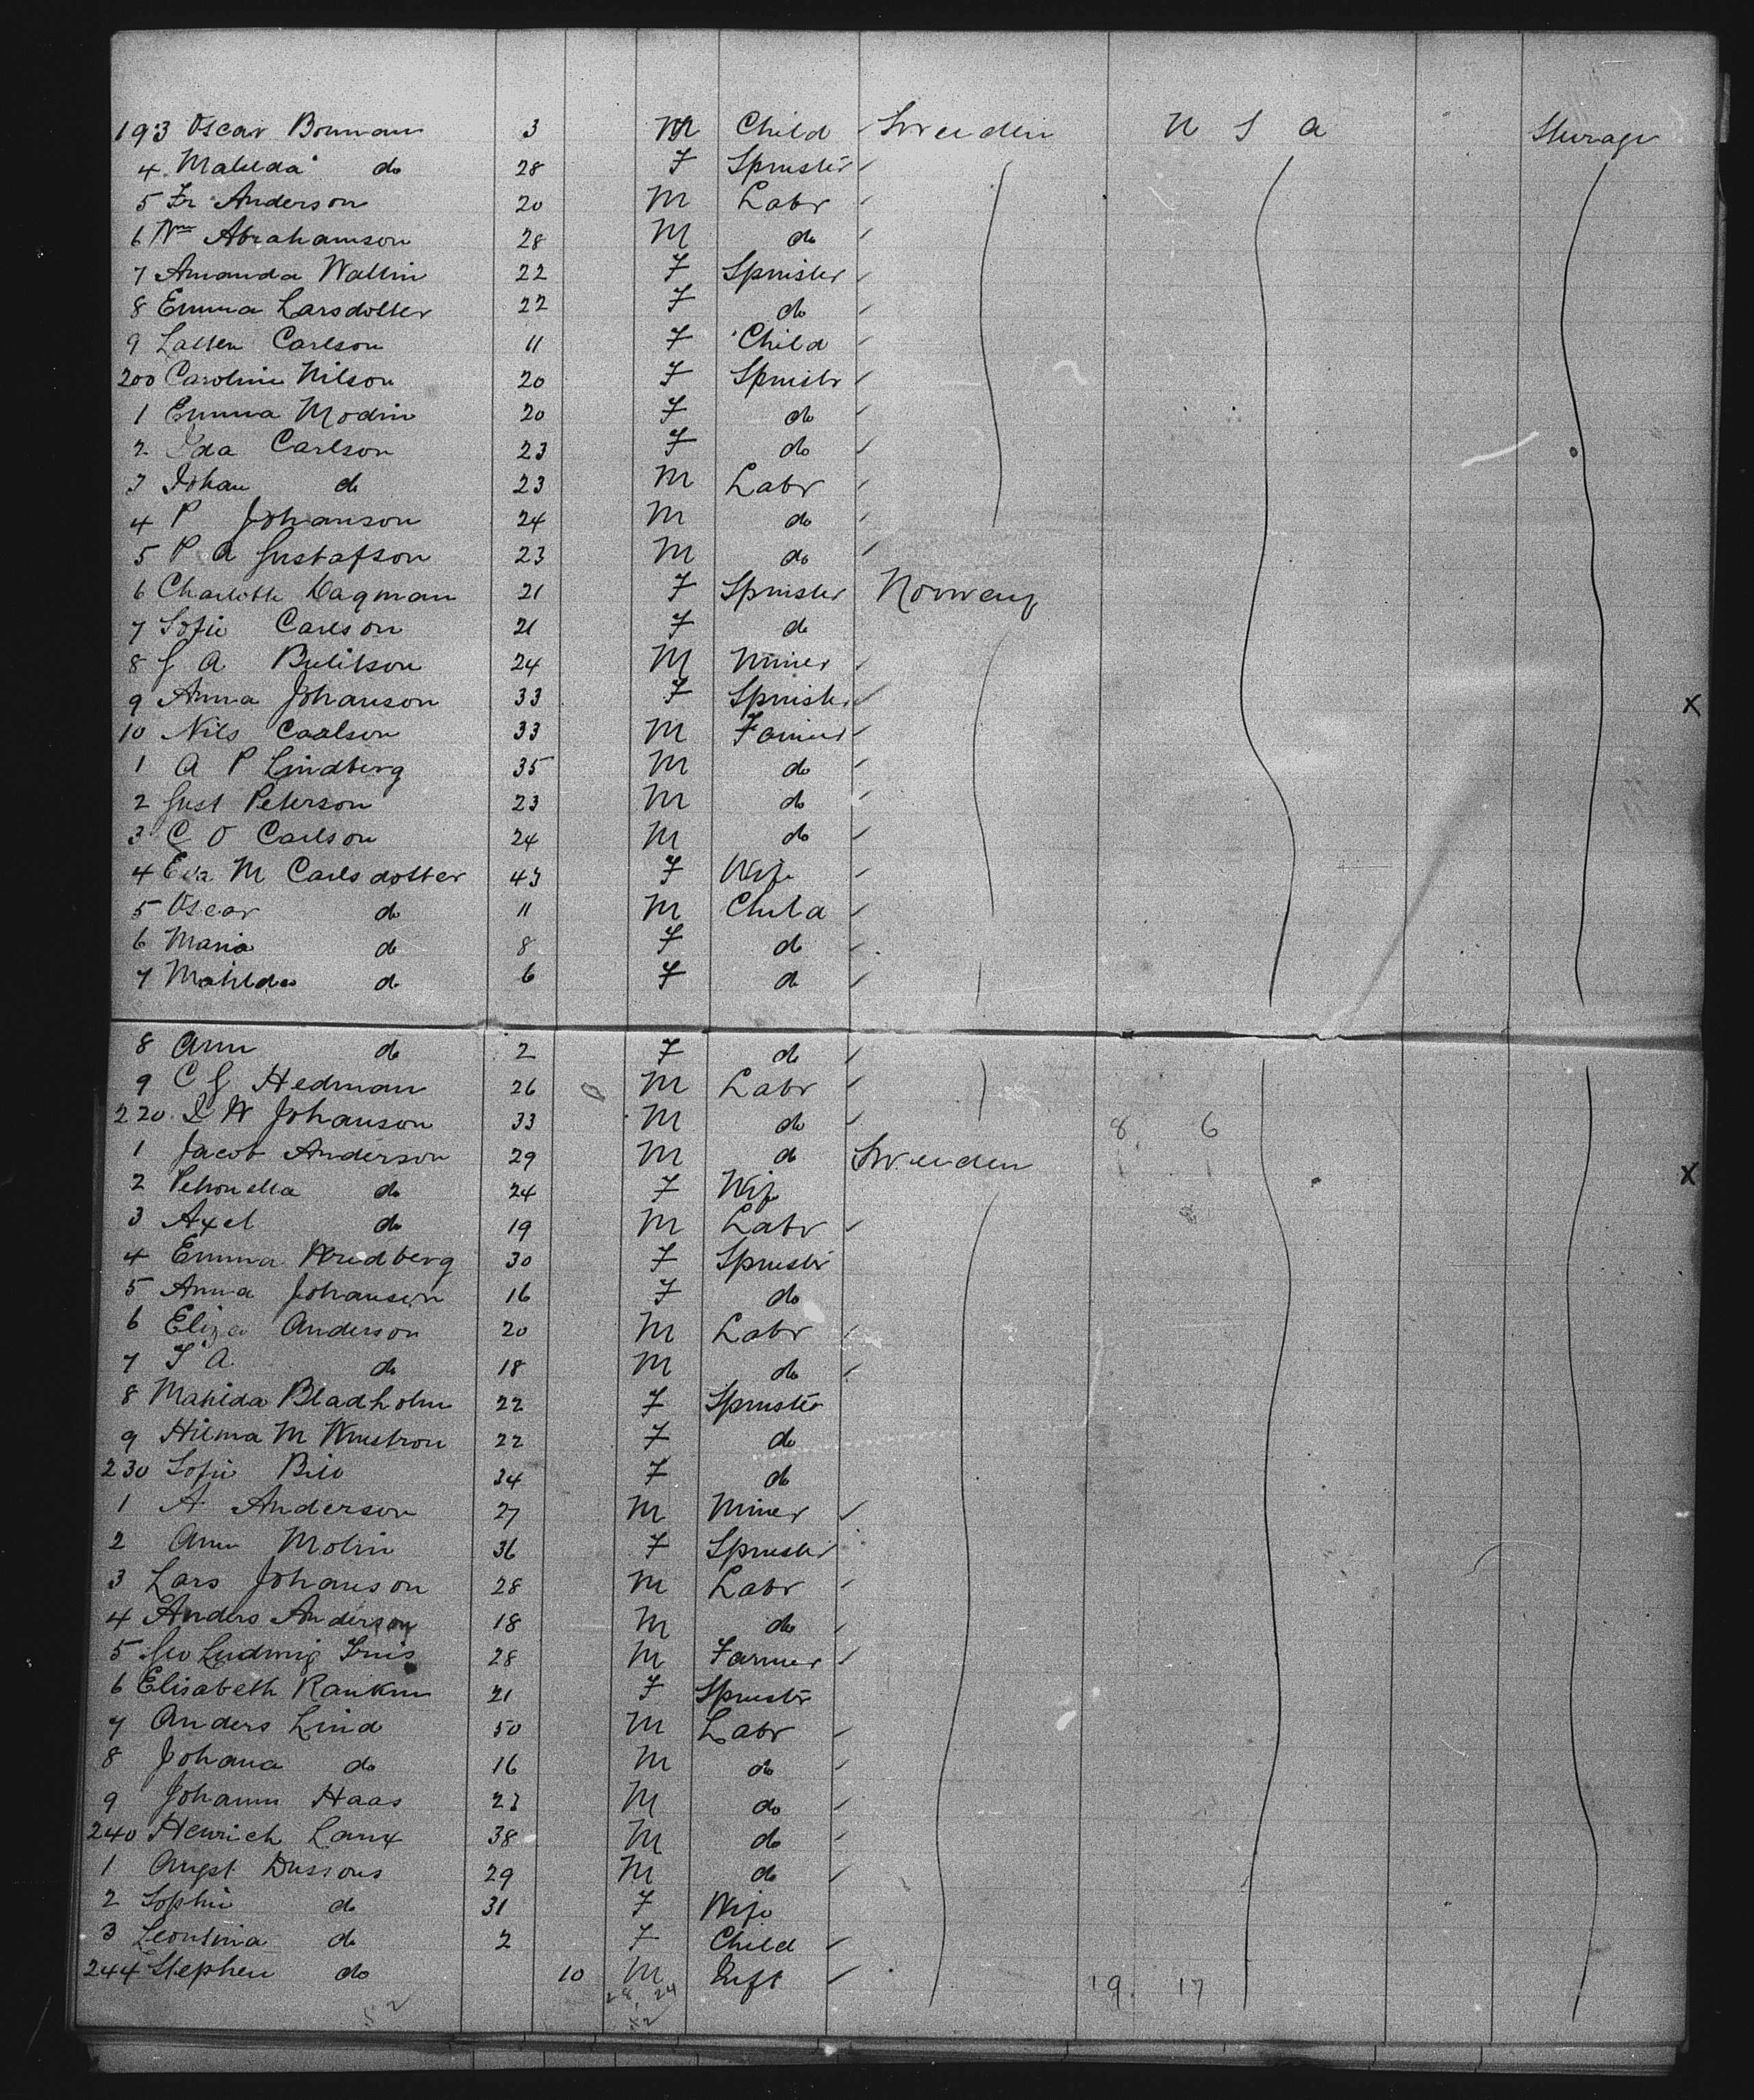 193 Oscar Bonman 3 M Child Sweeden U S A Sterage
4 Matilda do 28 F Spinster
5 Fr Anderson 20 M Labr
6 Wm Abrahamson 28 M do
7 Amanda Wallin 22 F Spinster
8 Emma Larsdotter 22 F do
9 Carlson 11 F Child
200 Caroline Nilson 20 F Spinstr
1 Emma Modin 20 F do
2 Ida Carlson 23 F do
3 Johan do 23 M Labr
4 P Johanson 24 M do
5 P A Gustafson 23 M do
6 Charlotte Dagman 21 F Spinster Norway
7 Sofie Carlson 21 F do
8 G A 24 M Miner
9 Anna Johanson 33 F Spinster X
10 Nils Carlson 33 M Farmer
1 A P Lindberg 35 M do
2 Gust Peterson 23 M do
3 C O Carlson 24 M do
4 Eva M Carlsdotter 43 F Wife
5 Oscar do 11 M Child
6 Maria do 8 F do
7 Matilda do 6 F do
8 Ann do 2 F do
9 C G Hedman 26 M Labr
220 L W Johanson 33 M do 8 6
1 Jacob Anderson 29 M do Sweeden X
2 Petronella do 24 F Wife
3 Axel do 19 M Labr
4 Emma Wredberg 30 F Spinster
5 Anna Johanson 16 F do
6 Eliza Anderson 20 M Labr
7 F A do 18 M do
8 Matilda Bladholm 22 F Spinster
9 Hilma M Winstron 22 F do
230 Sofie 34 F do
1 A Anderson 27 M Miner
2 Ann Molin 36 F Spinster
3 Lars Johanson 28 M Labr
4 Anders Anderson 18 M do
5 Geo Ludwig Friis 28 M Farmer
6 Elisabeth Rankin 21 F Spinstr
7 Anders Lind 50 M Labr
8 Johana do 16 M do
9 Johann Haas 23 M do
240 Henrich Lanx 38 M do
1 Augst Dussous 29 M do
2 Sophie do 31 F Wife
3 Leontina do 2 F Child
244 Stephen do 10 M Inft 19 17
28 24
52 52